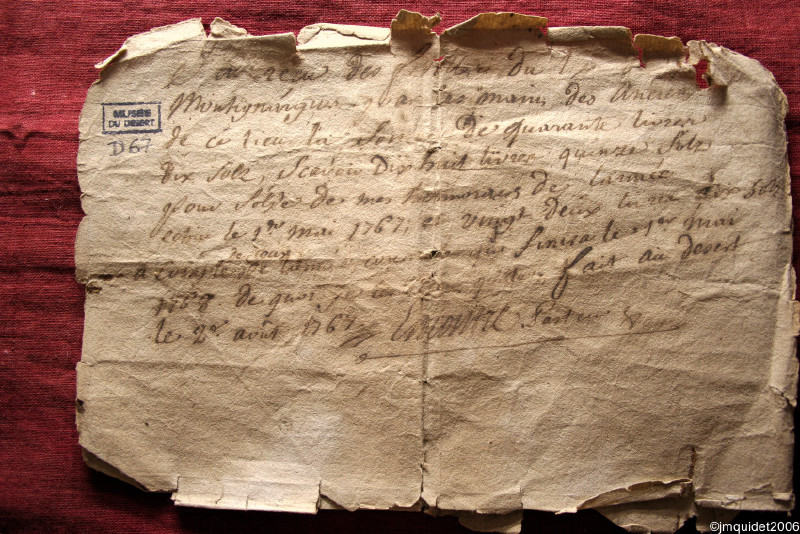 MUSÉE
DU DESERT
D67
reçeu des fidelles du
Montignargues par les mains des Anciens
de ce lieu la somme De quarante livres
dix sols, scavoir Dix huit livres quinze sols
pour solde de mes honnoraires de l'année
echue le 1er mai 1767, et vingt deux livres dix sols
a compte de l'année courante qui finira le 1er mai
1768 de quoi fait au desert
le 2e août 1767 Pasteur
©jmquidet2006